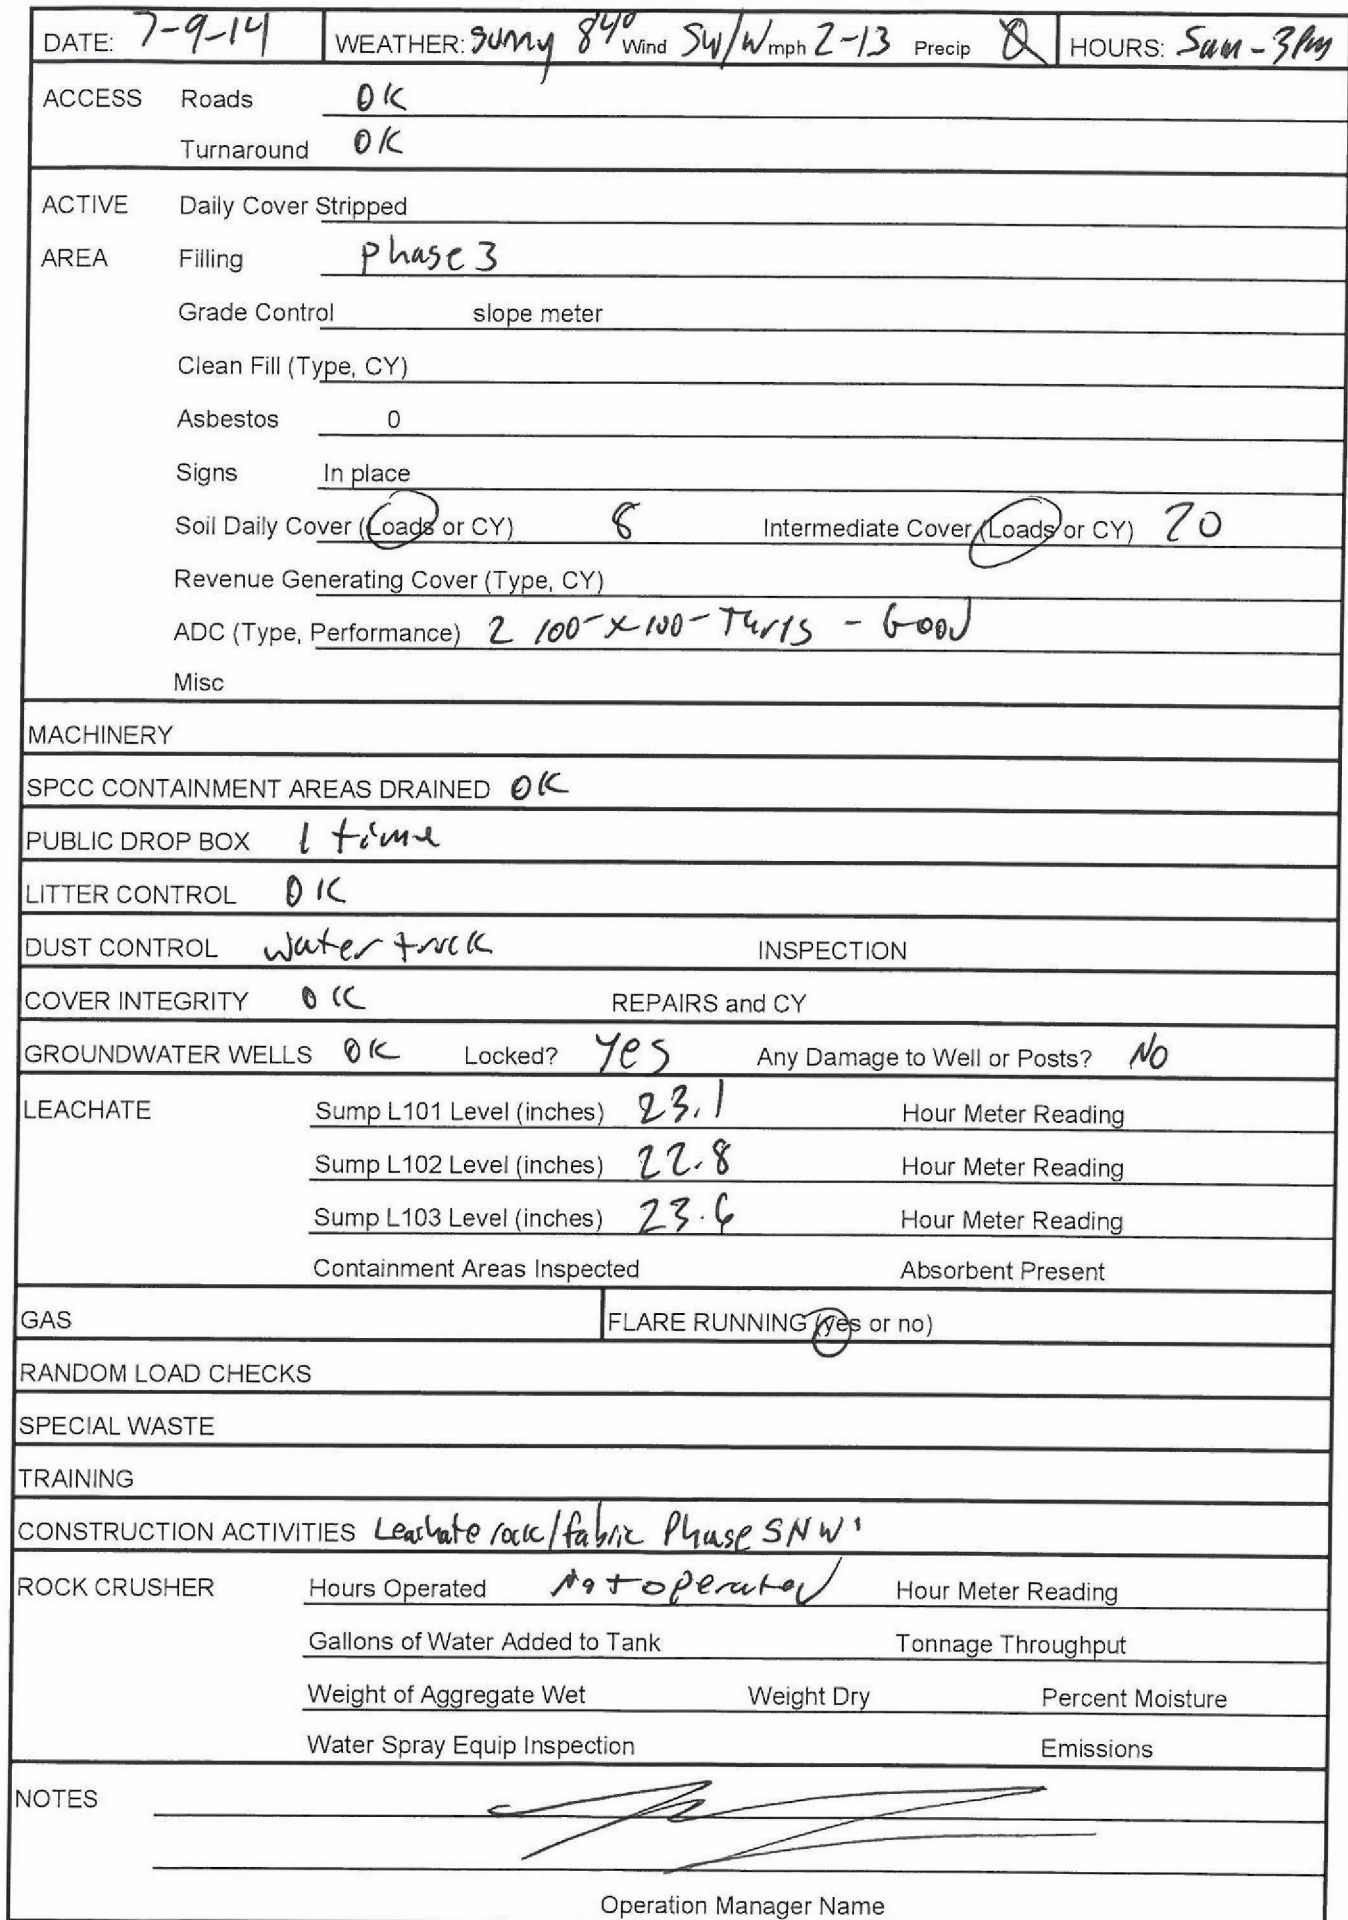 DATE: 7-9-14 WEATHER: Sunny 84° Wind SW/W mph 2-13 Precip 0 HOURS: 5am-3pm
ACCESS Roads OK
Turnaround OK
ACTIVE Daily Cover Stripped
AREA Filling Phase 3
Grade Control slope meter
Clean Fill (Type, CY)
Asbestos 0
Signs In place
Soil Daily Cover (Loads or CY) 8 Intermediate Cover (Loads or CY) 20
Revenue Generating Cover (Type, CY)
ADC (Type, Performance) 2 100-x100- - Good
Misc
MACHINERY
SPCC CONTAINMENT AREAS DRAINED OK
PUBLIC DROP BOX 1 time
LITTER CONTROL OK
DUST CONTROL water truck INSPECTION
COVER INTEGRITY OK REPAIRS and CY
GROUNDWATER WELLS OK Locked? Yes Any Damage to Well or Posts? NO
LEACHATE Sump L101 Level (inches) 23.1 Hour Meter Reading
Sump L102 Level (inches) 22.8 Hour Meter Reading
Sump L103 Level (inches) 23.6 Hour Meter Reading
Containment Areas Inspected Absorbent Present
GAS FLARE RUNNING (yes or no)
RANDOM LOAD CHECKS
SPECIAL WASTE
TRAINING
CONSTRUCTION ACTIVITIES Leachate rock/fabric Phase 5NW
ROCK CRUSHER Hours Operated Not operated Hour Meter Reading
Gallons of Water Added to Tank Tonnage Throughput
Weight of Aggregate Wet Weight Dry Percent Moisture
Water Spray Equip Inspection Emissions
NOTES
Operation Manager Name